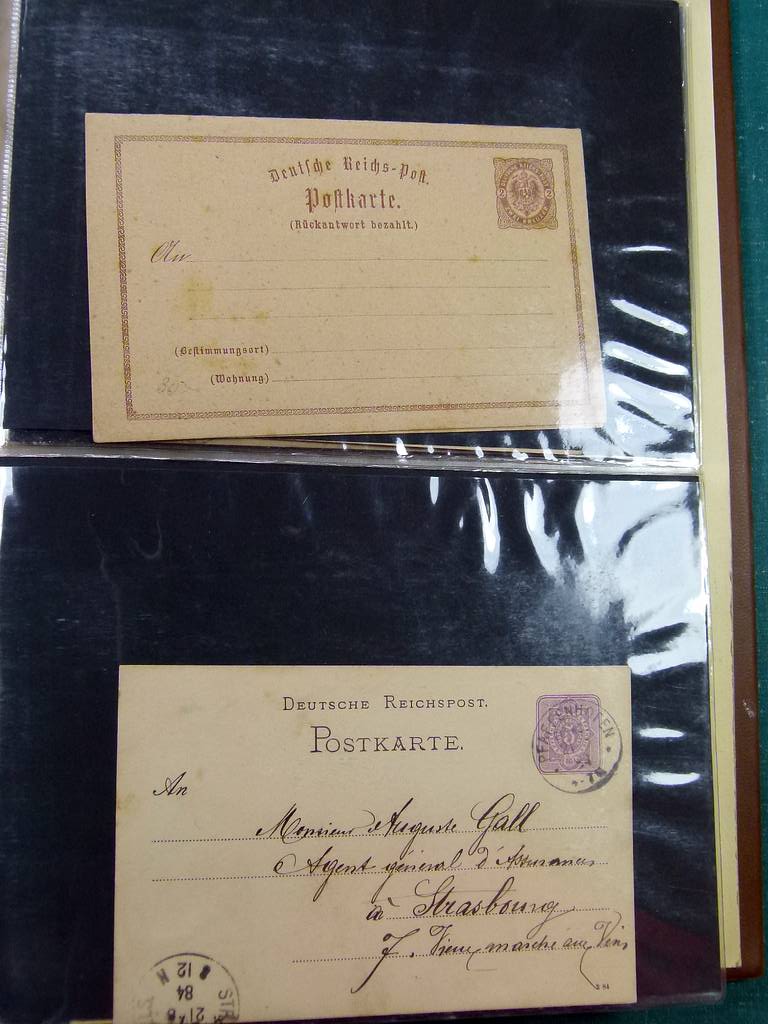 Deutsche Reichs-Post.
Postkarte.
(Rückantwort bezahlt.)
2 2
An
(Bestimmungsort)
(Wohnung)
DEUTSCHE REICHSPOST.
POSTKARTE.
PFAFFENHOFEN
5
An
Monsieur Auguste Gall
Agent général d'Assurances
à Strasbourg
7. Vieux marché aux Vins
2 84
STR
21 8
84
8 12
N